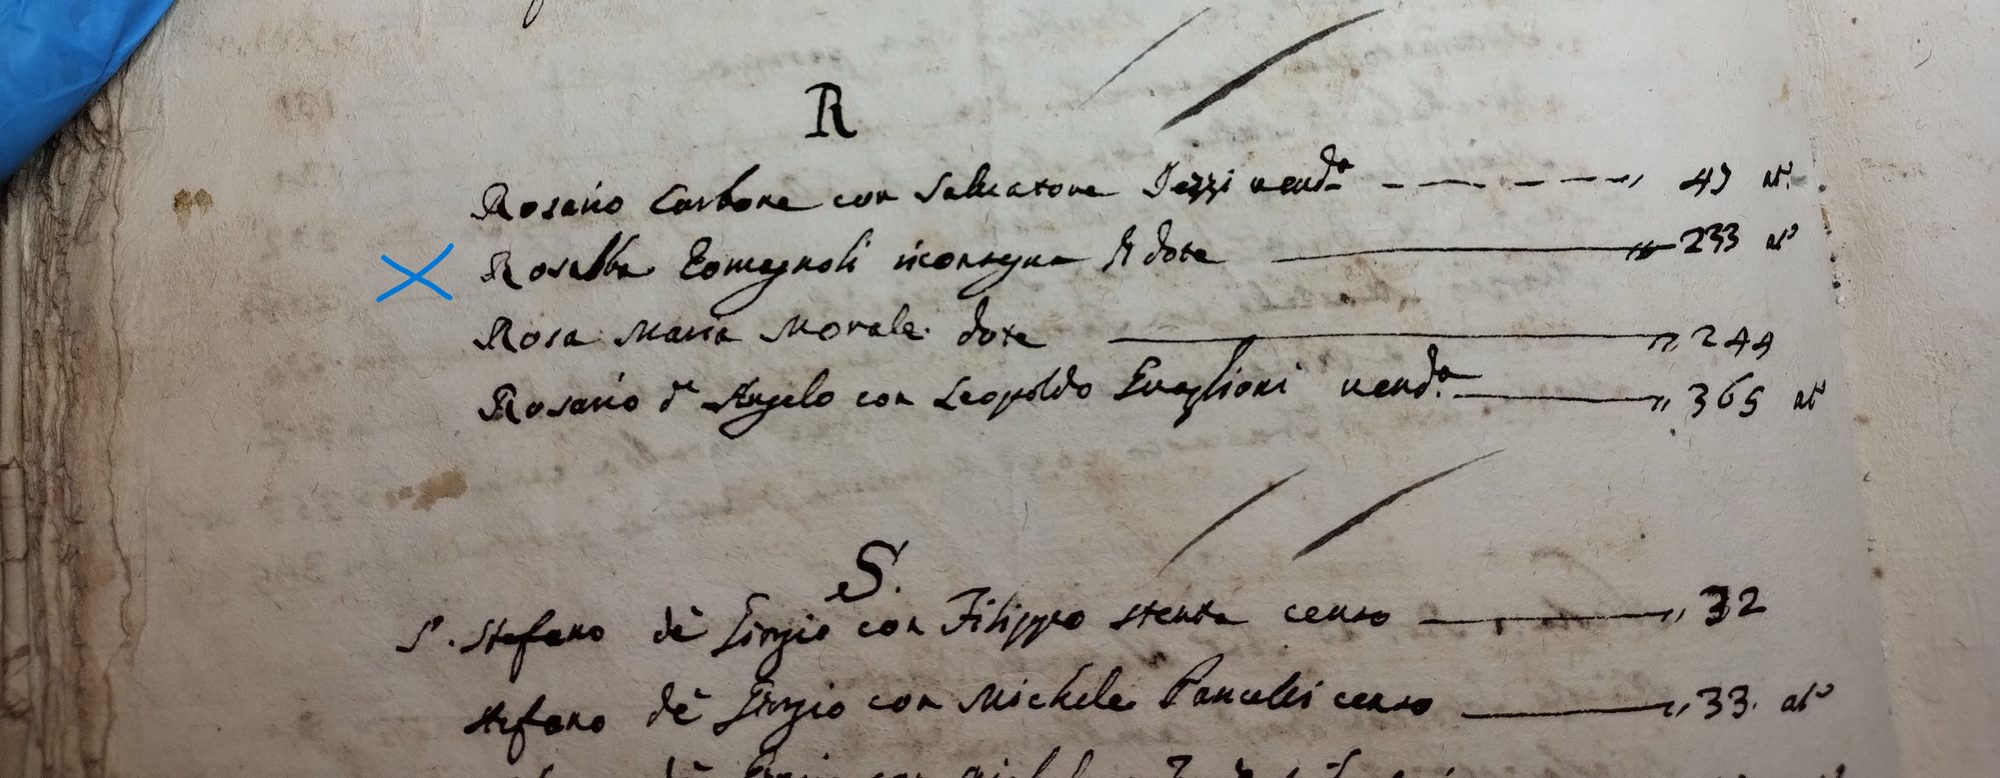 R
Rosario Carbone con Salvatore Iezzi vend.ª 47 at.
Rosalba Romagnoli riconsegna di dote 233 at.º
Rosa Maria Morale dote 244
Rosario d' Angelo con Leopoldo vend.ª 365 at.
S.
S. Stefano de Giorgio con Filippo Stenta censo 32
Stefano de Giorgio con Michele censo 33. at.º